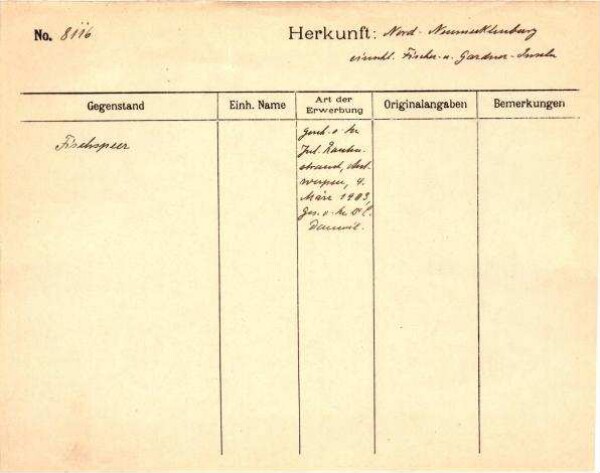 No. 8116
Herkunft: Nord-Neumecklenburg
einschl. Fischer- u. Gardner-Inseln
Gegenstand
Einh. Name
Art der
Erwerbung
Originalangaben
Bemerkungen
Fischspeer
Gesch. v. Hr.
Jul.
strauch, Ant-
werpen, 4.
März 1903,
Ges. v. Hr.